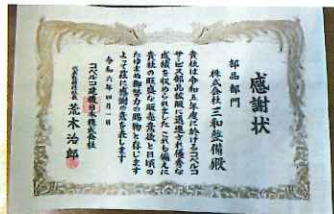 感謝状
部品部門
株式会社三和整備殿
貴社は令和五年度に於けるコベルコ
サービス部品拡販に邁進され優秀な
成績を収められました これも偏えに
貴社の旺盛な販売意欲と日頃の
たゆまぬ御努力の賜物と存じます
よって茲に感謝の意を表します
令和六年四月一日
コベルコ建機日本株式会社
代表取締役社長 荒木治郎